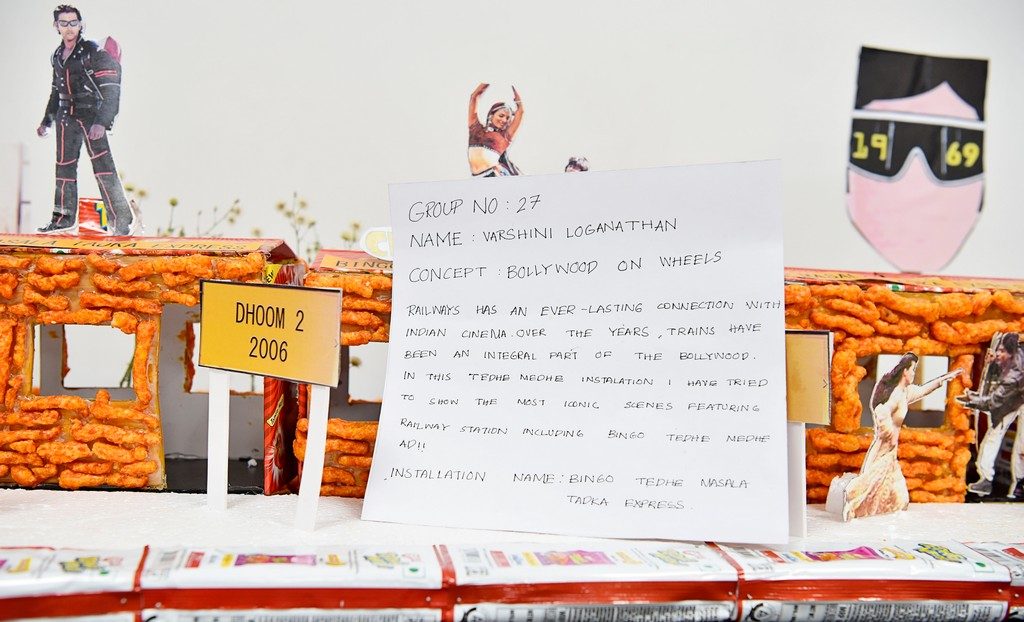 19 69
GROUP NO : 27
NAME : VARSHINI LOGANATHAN
CONCEPT : BOLLYWOOD ON WHEELS
RAILWAYS HAS AN EVER-LASTING CONNECTION WITH
INDIAN CINEMA. OVER THE YEARS, TRAINS HAVE
BEEN AN INTEGRAL PART OF THE BOLLYWOOD.
IN THIS TEDHE MEDHE INSTALATION I HAVE TRIED
TO SHOW THE MOST ICONIC SCENES FEATURING
RAILWAY STATION INCLUDING BINGO TEDHE MEDHE
AD!!
INSTALLATION NAME : BINGO TEDHE MASALA
TADKA EXPRESS.
TADKA EXPRESS
BINGO
DHOOM 2
2006